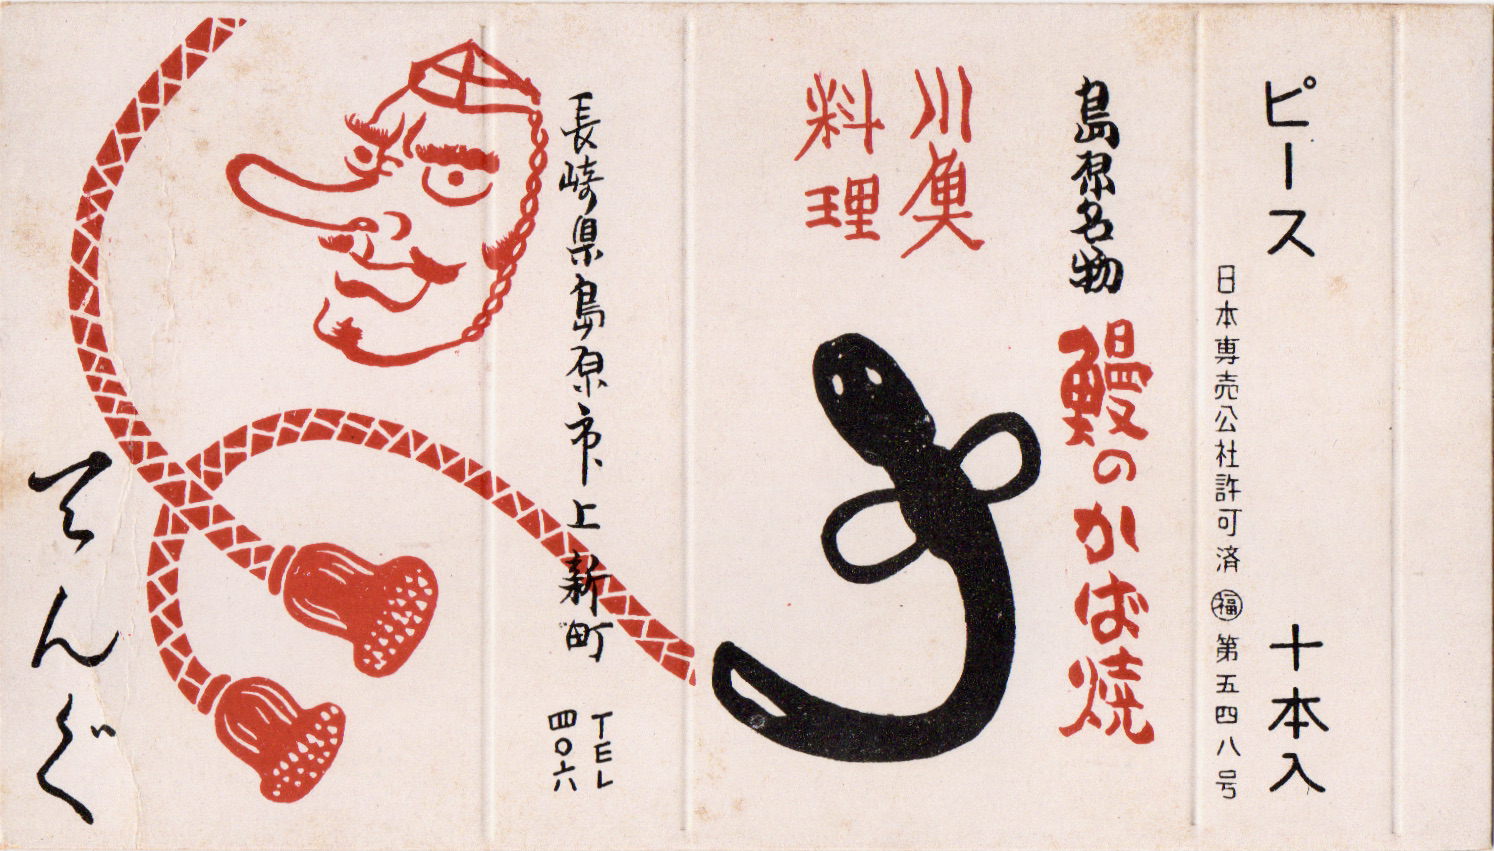 ピース 十本入
日本専売公社許可済 ㊞福 第五四八号
島原名物 鰻のかば焼
川魚
料理
長崎県島原市上新町
TEL
四〇六
てんぐ